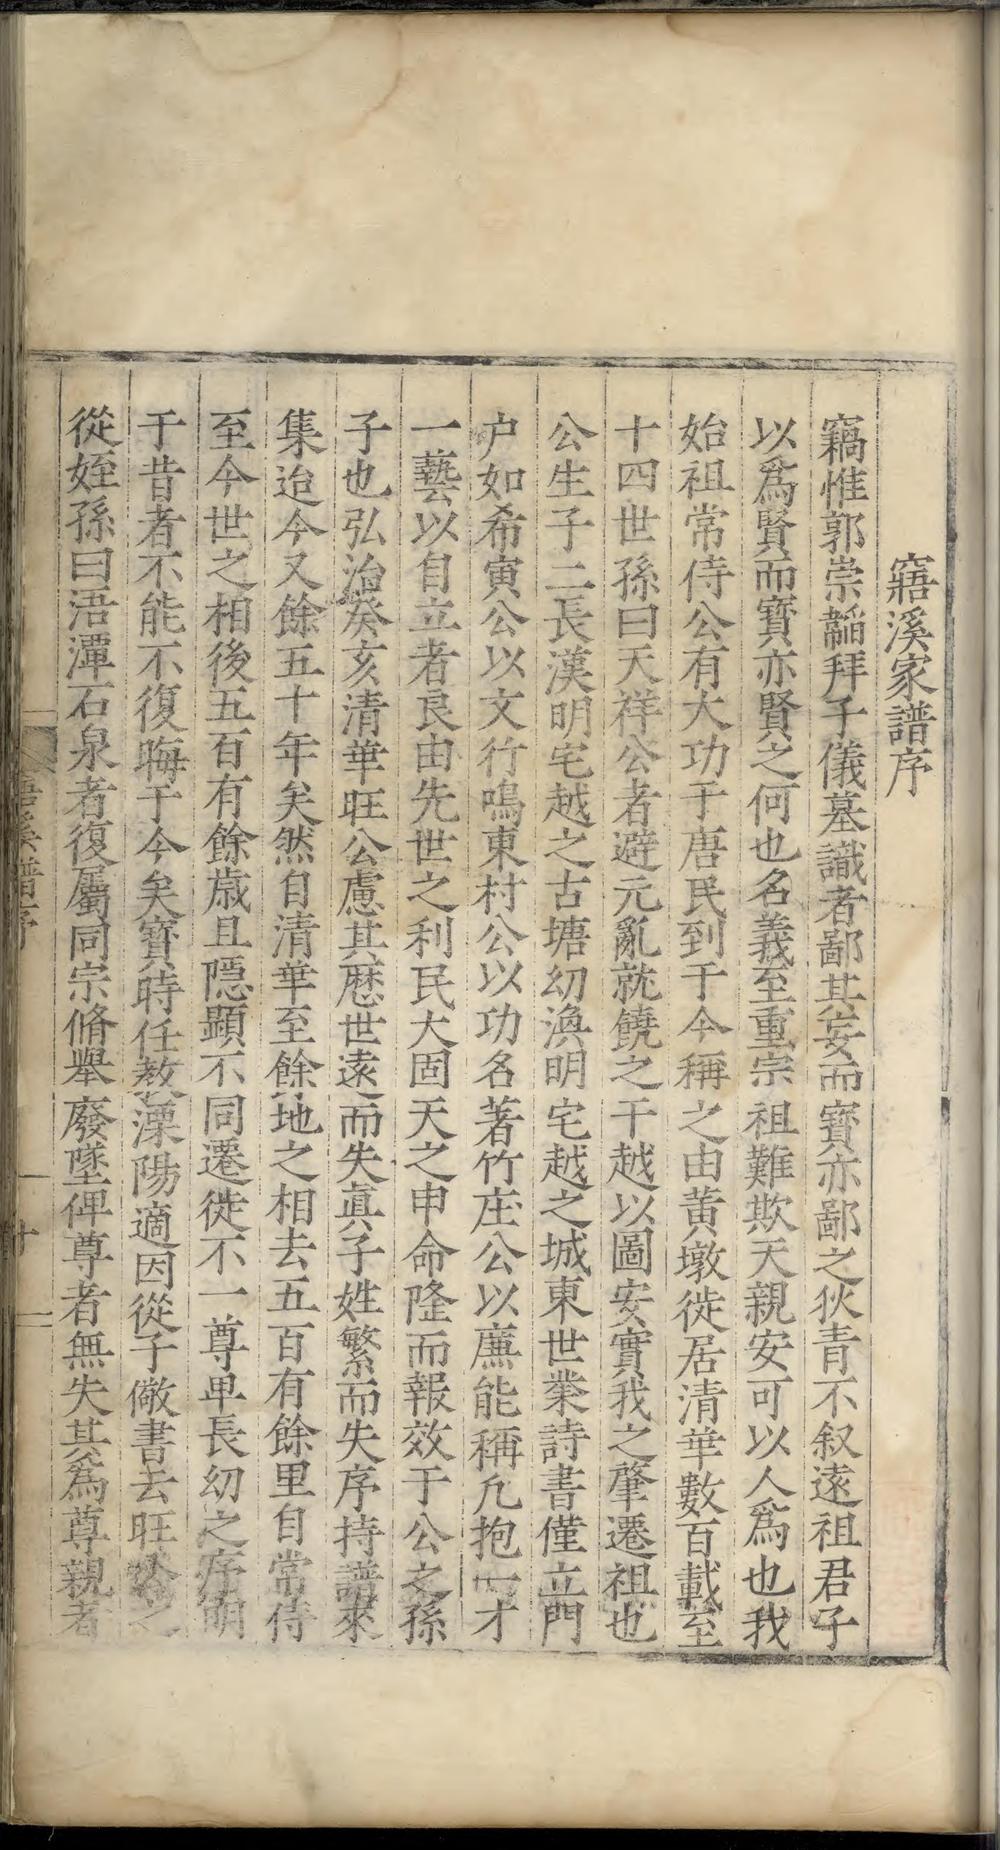 寤溪家譜序
竊惟郭崇韜拜子儀墓識者鄙其妄而寶亦鄙之狄青不叙遠祖君子
以爲賢而寶亦賢之何也名義至重宗祖難欺天親安可以人爲也我
始祖常侍公有大功于唐民到于今稱之由黄墩徙居清華數百載至
十四世孫曰天祥公者避元亂就饒之干越以圖安實我之肇遷祖也
公生子二長漢明宅越之古塘幼渙明宅越之城東世業詩書僅立門
户如希寅公以文行鳴東村公以功名著竹庄公以廉能稱凡抱一才
一藝以自立者良由先世之利民大固天之申命隆而報效于公之孫
子也弘治癸亥清華旺公慮其歷世遠而失真子姓繁而失序持譜來
集迨今又餘五十年矣然自清華至餘地之相去五百有餘里自常侍
至今世之相後五百有餘歲且隱顯不同遷徙不一尊卑長幼之序明
于昔者不能不復晦于今矣寶時任教溧陽適因從子儆書去旺公之
從姪孫曰浯潭石泉者復屬同宗脩舉廢墜俾尊者無失其爲尊親者